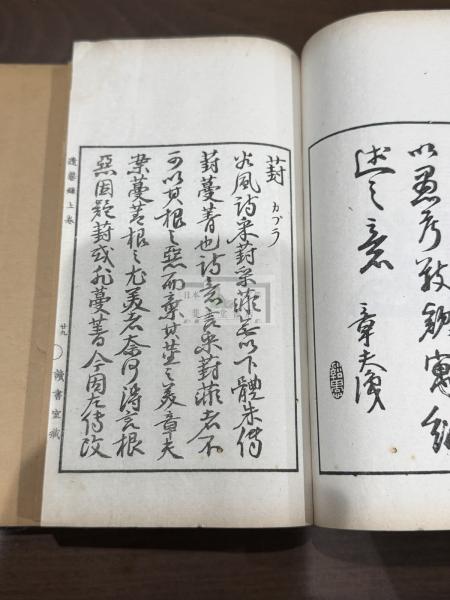 述之意 章夫
葑 カブラ
谷風詩采葑采菲無以下體朱傳
葑蔓菁也詩意言采葑菲者不
可以其根之惡而棄其莖之美章夫
案蔓菁根之尤美者奈何得言根
惡因疑葑或非蔓菁今因左傳改
上卷
廿九
讀書室藏
日本
堂